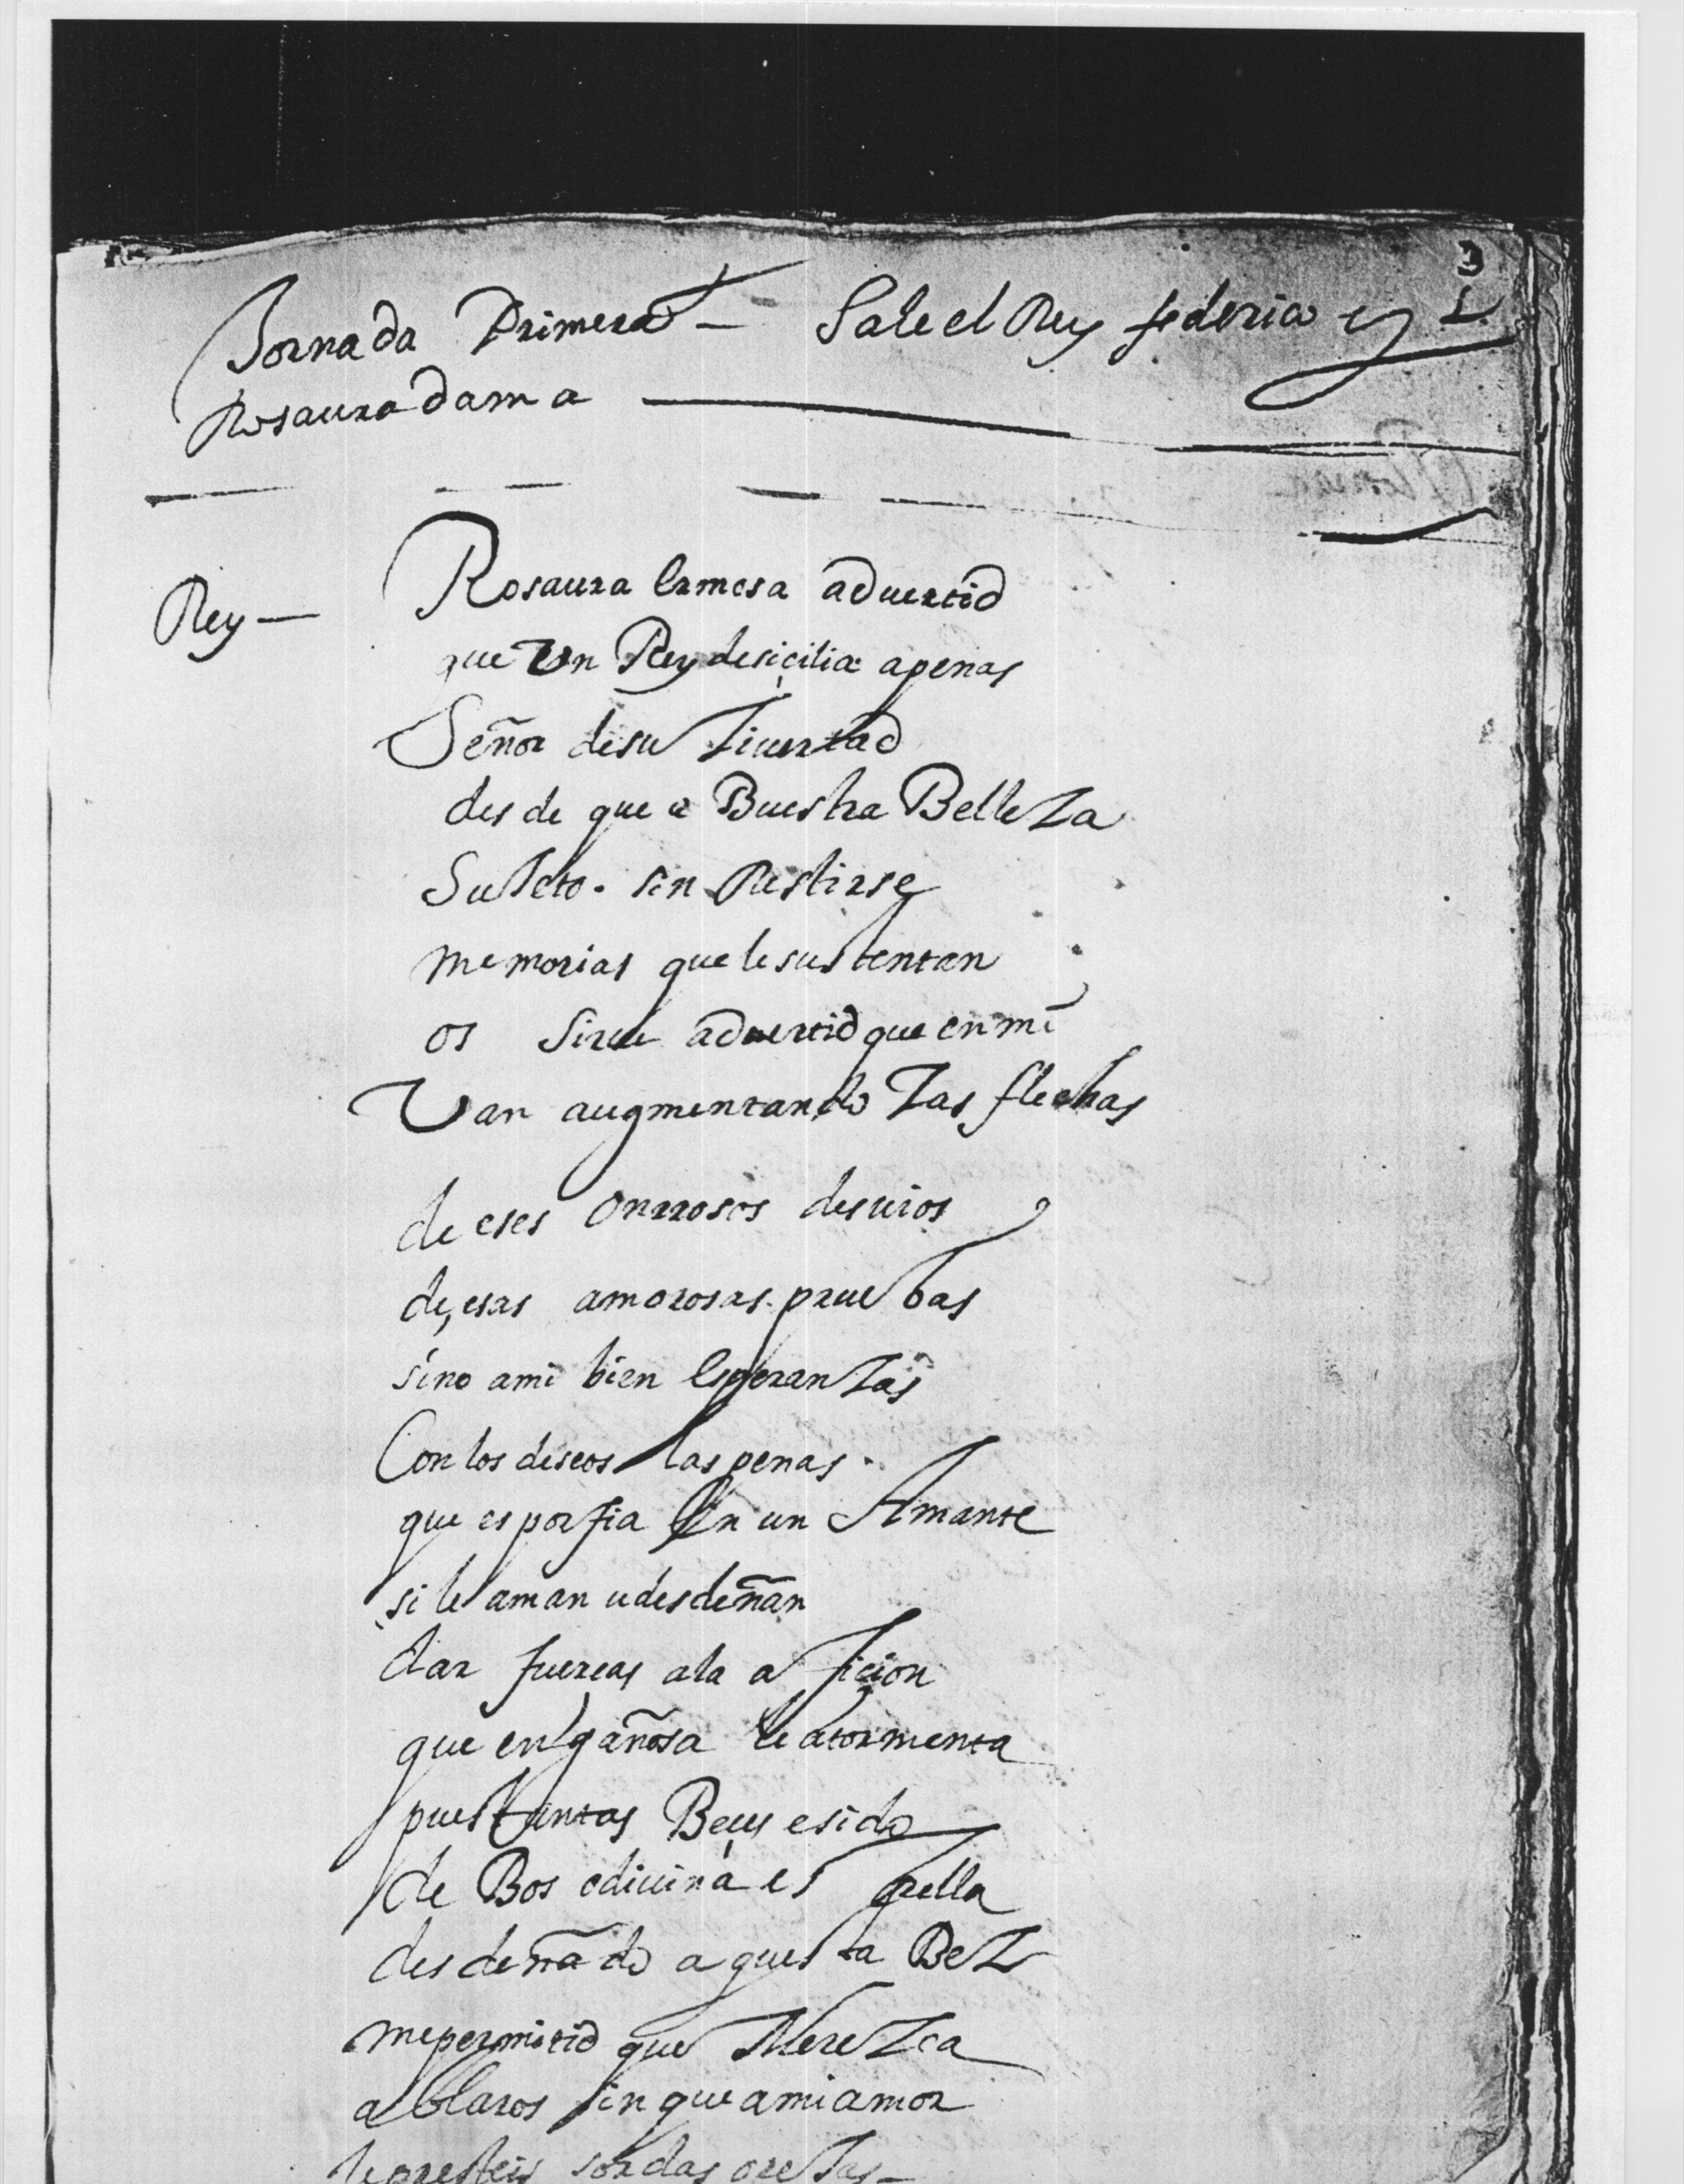 3
1
Jornada Primera — Sale el Rey federico y
Rosaura dama
Rey — Rosaura ermosa aduertid
que Un Rey de sicilia apenas
Señor de su liuertad
des de que a Buestra BelleZa
suJeto. sin Restirse
memorias que le sustentan
os sirue aduertid que en mi
Van augmentando las flechas
de esos onrrosos desuios
de esas amorosas pruebas
sino ami bien esperanZas
Con los deseos las penas.
que es porfia En un Amante
si le aman u desdeñan
dar fuercas ala aficion
que engañosa le atormenta
pues tantas Beces e sido
de Bos o diuina estrella
desdeñado aquesta BeZ
me permitid que MereZca
ablaros sin que a mi amor
le presteis sordas oreJas